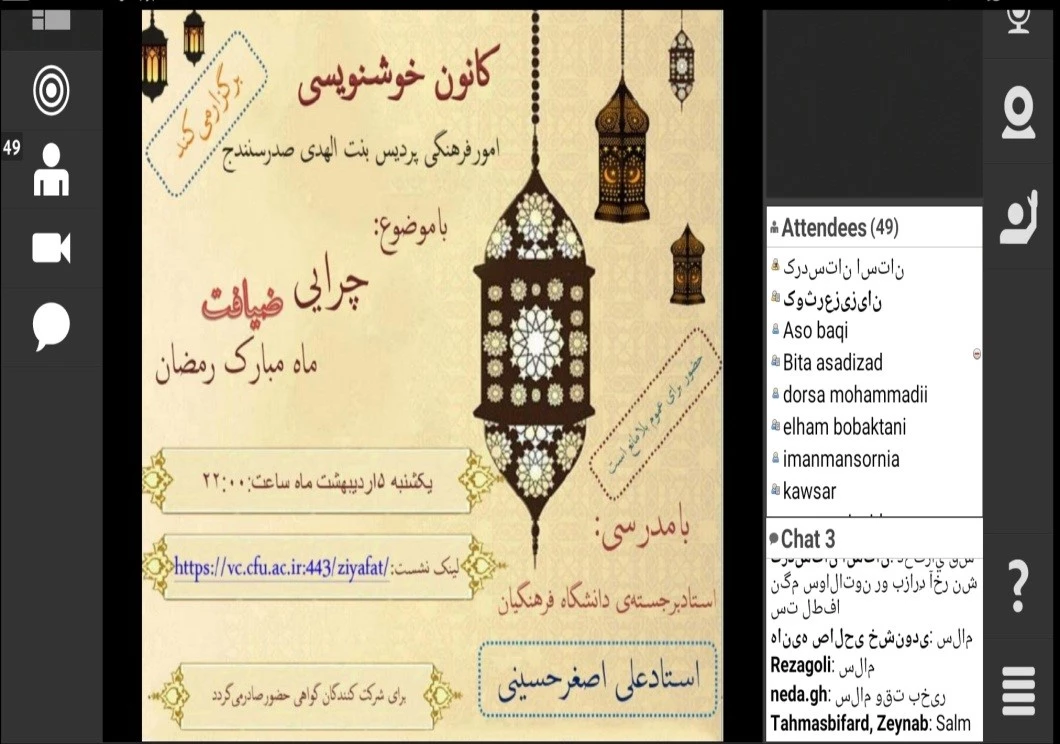 49
کانون خوشنویسی
برگزارمی کند
امورفرهنگی پردیس بنت الهدی صدرسنندج
باموضوع:
چرایی ضیافت
ماه مبارک رمضان
حضور برای عموم بلامانع است
یکشنبه ۵اردیبهشت ماه ساعت:۲۲:۰۰
لینک نشست:https://vc.cfu.ac.ir:443/ziyafat/
بامدرسی:
استادبرجسته‌ی دانشگاه فرهنگیان
استادعلی اصغرحسینی
برای شرکت کنندگان گواهی حضورصادرمی‌گردد
Attendees (49)
ناتسا ناتسدرک
نایزیزعرثوک
Aso baqi
Bita asadizad
dorsa mohammadii
elham bobaktani
imanmansornia
kawsar
Chat 3
نگم سوالاتون رو بزارد آخر نش
ست لطفا
هانیه صالحی خشنودی: سلام
Rezagoli: سلام
neda.gh: سلام وقت بخیر
Tahmasbifard, Zeynab: Salm